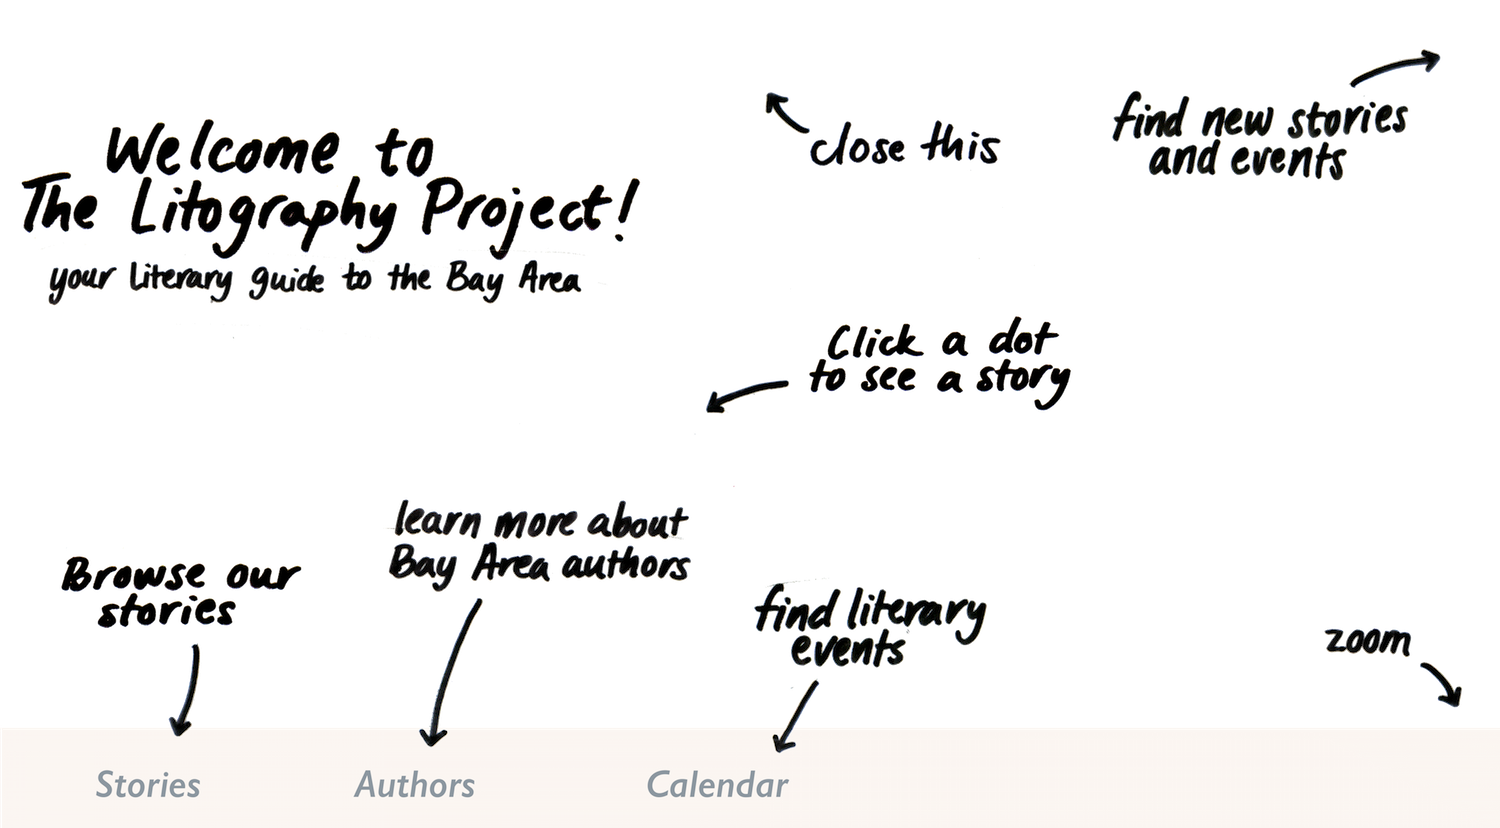 Welcome to
The Litography Project!
your literary guide to the Bay Area
close this
find new stories
and events
Click a dot
to see a story
learn more about
Bay Area authors
Browse our
stories
find literary
events
zoom
Stories
Authors
Calendar